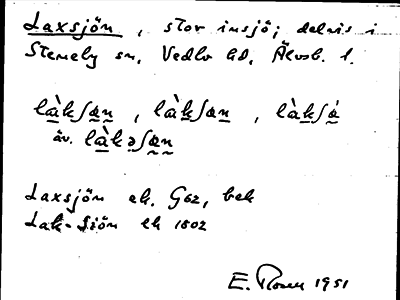 Laxsjön, stor insjö; delvis i
Steneby sn, Vedbo hd, Älvsb. l.
là̱kʃæ̱n̰, là̱kʃæn̰, là̱kʃǻ
äv. là̱kə̱ʃæ̰n̰
Laxsjön ek. G62, bek
Lak-Siön ek 1802
E. Rosen 1951